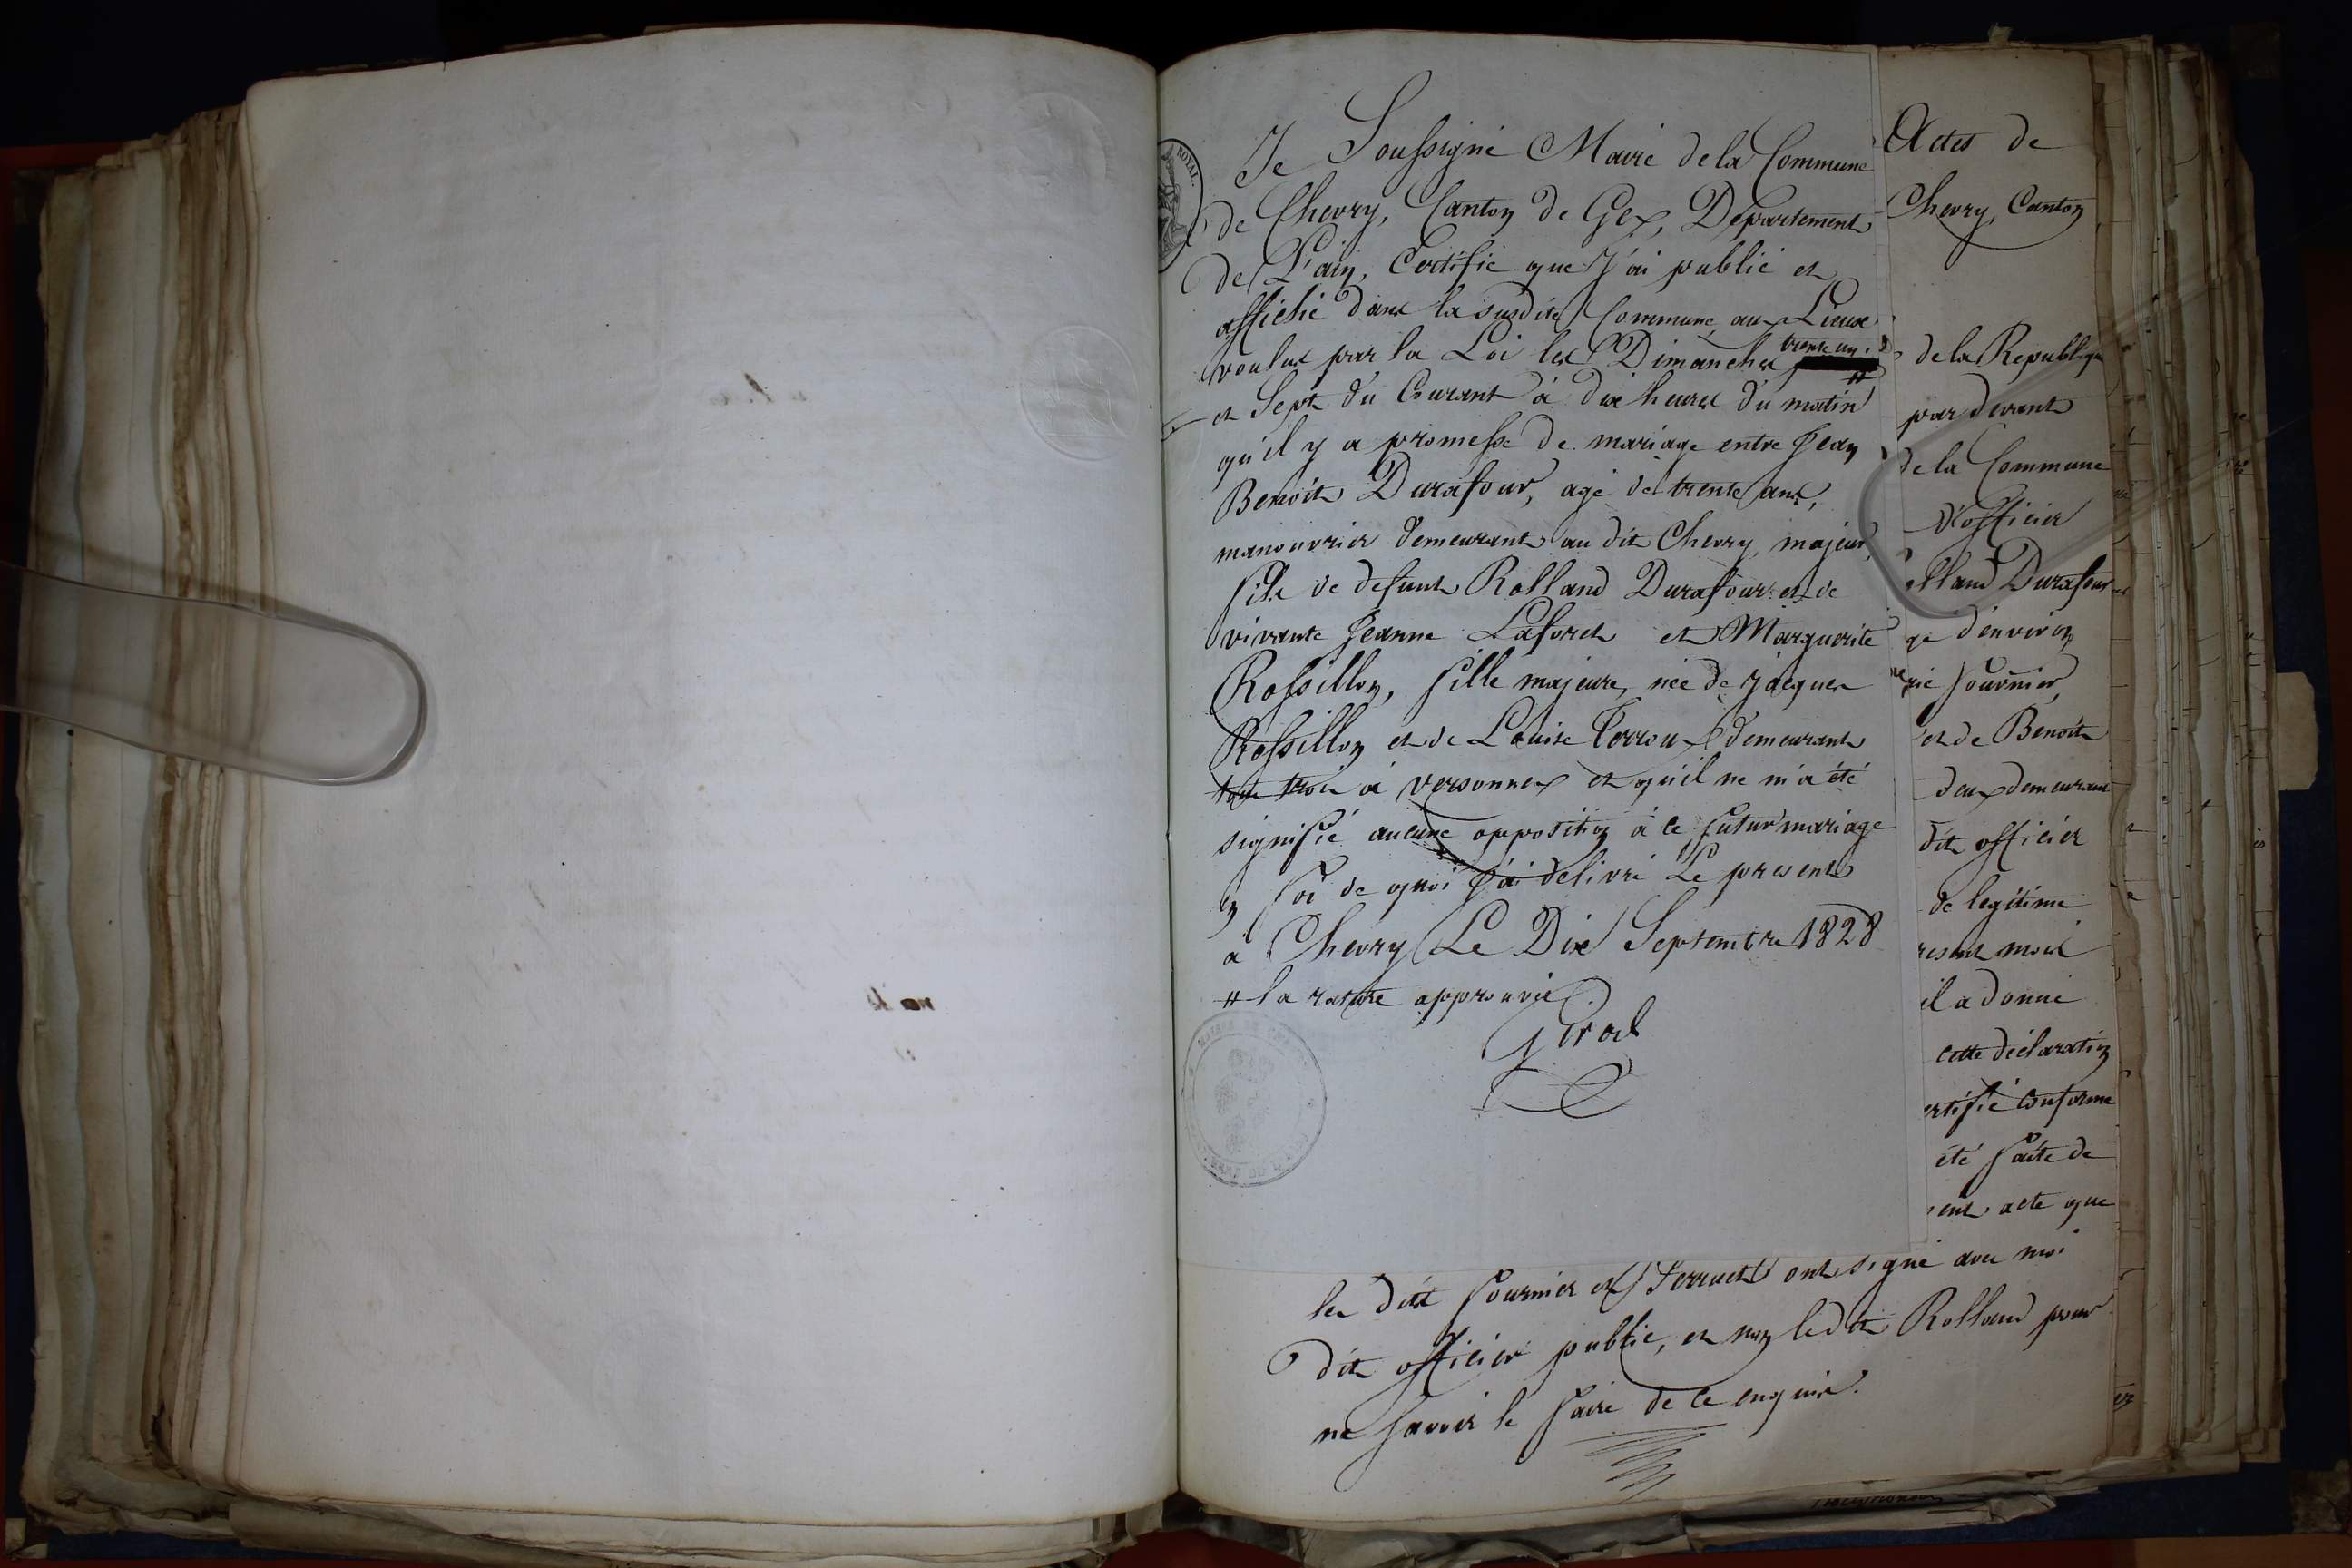 ROYAL
Je Soussigné Maire de la Commune
de Chevry, Canton de Gex, Département
de L'ain, Certifie que J'ai publié et
affiché dans la susdite Commune aux Lieux
voulus par la Loi les Dimanches trente un
et Sept du Courant à dix heures du matin
qu'il y a promesse de mariage entre Jean
Benoit Durafour, agé de trente ans,
manouvrier demeurant au dit Chevry, majeur,
fils de defunt Rolland Durafour et de
vivante Jeanne Laforet et Marguerite
Rossillon, fille majeure, née de Jacques
Rossillon et de Louise Perroux demeurant
tous trois à versonnex et qu'il ne m'a été
signifié aucune opposition à ce futur mariage
foi de quoi J'ai delivré Le present
à Chevry Le Dix Septembre 1828
# la rature approuvée.
Girod
Actes de
Chevry, Canton
de la Republique
par devant
de la Commune
D'officier
olland Durafour
ge d'environ
rie fournier,
et de Benoit
deux demeurant
dit officier
de legitime
resent mois
il a donné
cette déclaration
ertifié conforme
été faite de
ent acte que
les dits fournier et Perruet ont signé avec moi
dit officier public, et non le dit Rolland pour
ne savoir le faire de ce enquis.